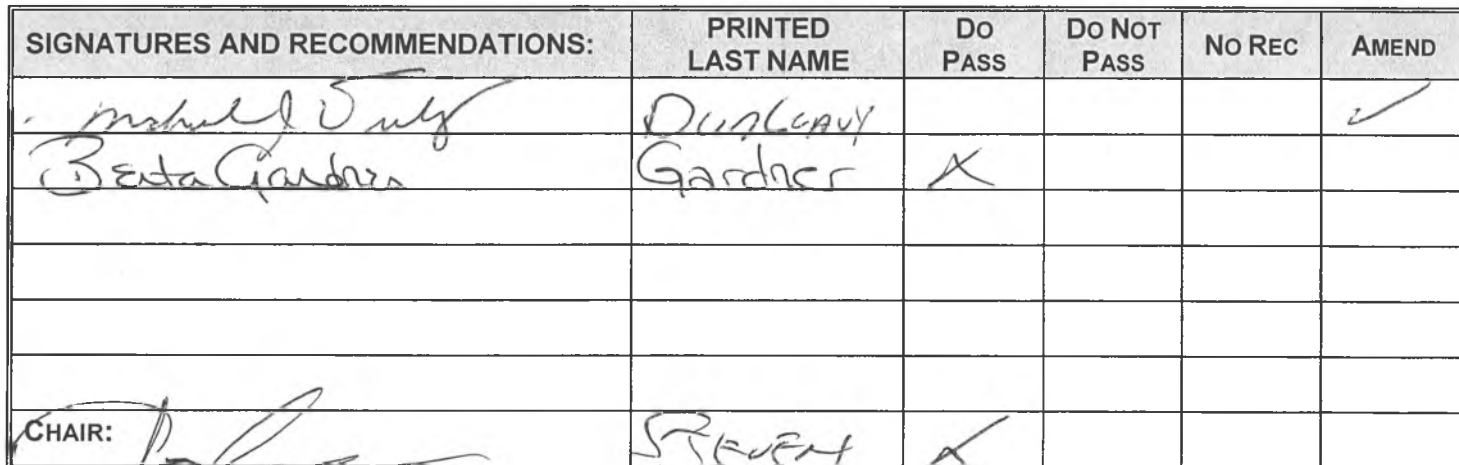 SIGNATURES AND RECOMMENDATIONS: PRINTED LAST NAME DO PASS DO NOT PASS NO REC AMEND
Dunleavy ✓
Berta Gardner Gardner X
CHAIR: STEVEN X